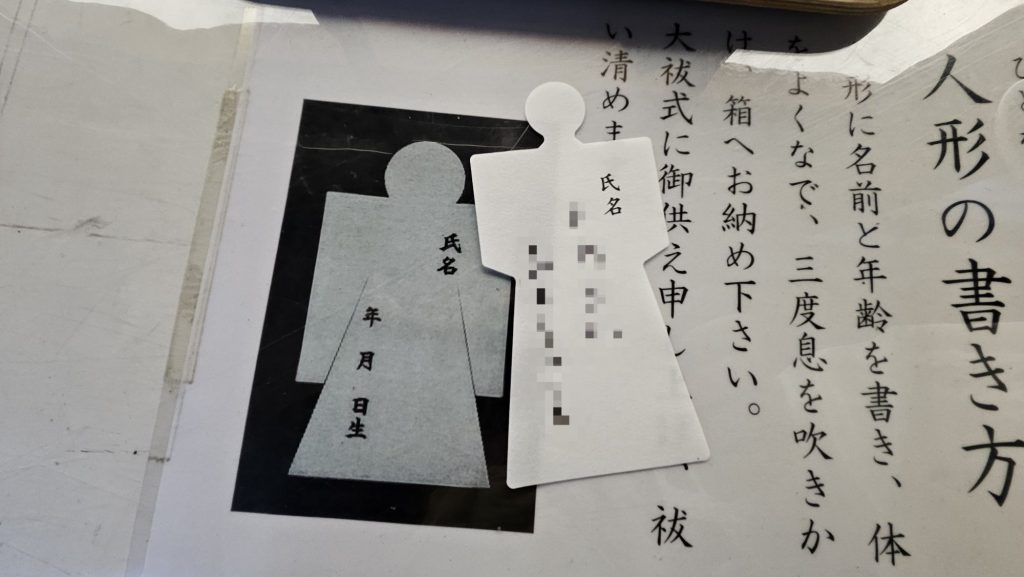 人形の書き方
形に名前と年齢を書き、体
をよくなで、三度息を吹きか
け、箱へお納め下さい。
大祓式に御供え申し、祓
い清めま
氏名
氏名
年 月 日生